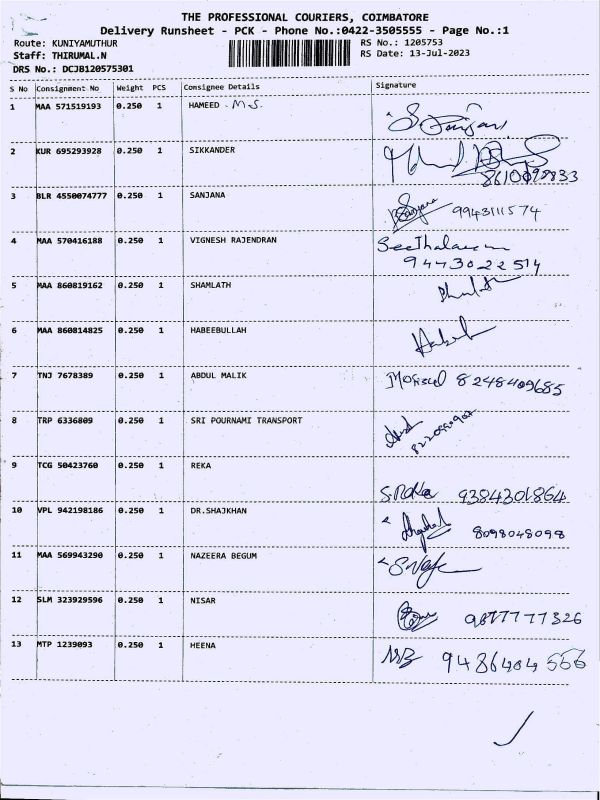 THE PROFESSIONAL COURIERS, COIMBATORE
Delivery Runsheet - PCK - Phone No.:0422-3505555 - Page No.:1
Route: KUNIYAMUTHUR RS No.: 1205753
Staff: THIRUMAL.N RS Date: 13-Jul-2023
DRS No.: DCJB120575301
S No Consignment No Weight PCS Consignee Details Signature
1 MAA 571519193 0.250 1 HAMEED . M.S.
2 KUR 695293928 0.250 1 SIKKANDER
3 BLR 4550074777 0.250 1 SANJANA 9943111574
4 MAA 570416188 0.250 1 VIGNESH RAJENDRAN
9443022514
5 MAA 860819162 0.250 1 SHAMLATH
6 MAA 860814825 0.250 1 HABEEBULLAH
7 TNJ 7678389 0.250 1 ABDUL MALIK 8248409685
8 TRP 6336809 0.250 1 SRI POURNAMI TRANSPORT
9 TCG 50423760 0.250 1 REKA
9384301864
10 VPL 942198186 0.250 1 DR.SHAJKHAN
8098048098
11 MAA 569943290 0.250 1 NAZEERA BEGUM
12 SLM 323929596 0.250 1 NISAR
9877777326
13 MTP 1239093 0.250 1 HEENA
9486404566